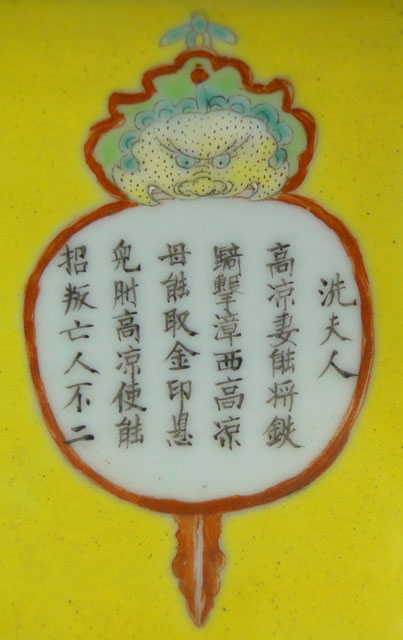 洗夫人
高凉妻能将鉄
騎擊漳西高凉
母能取金印悬
兒肘高凉使能
招叛亡人不二